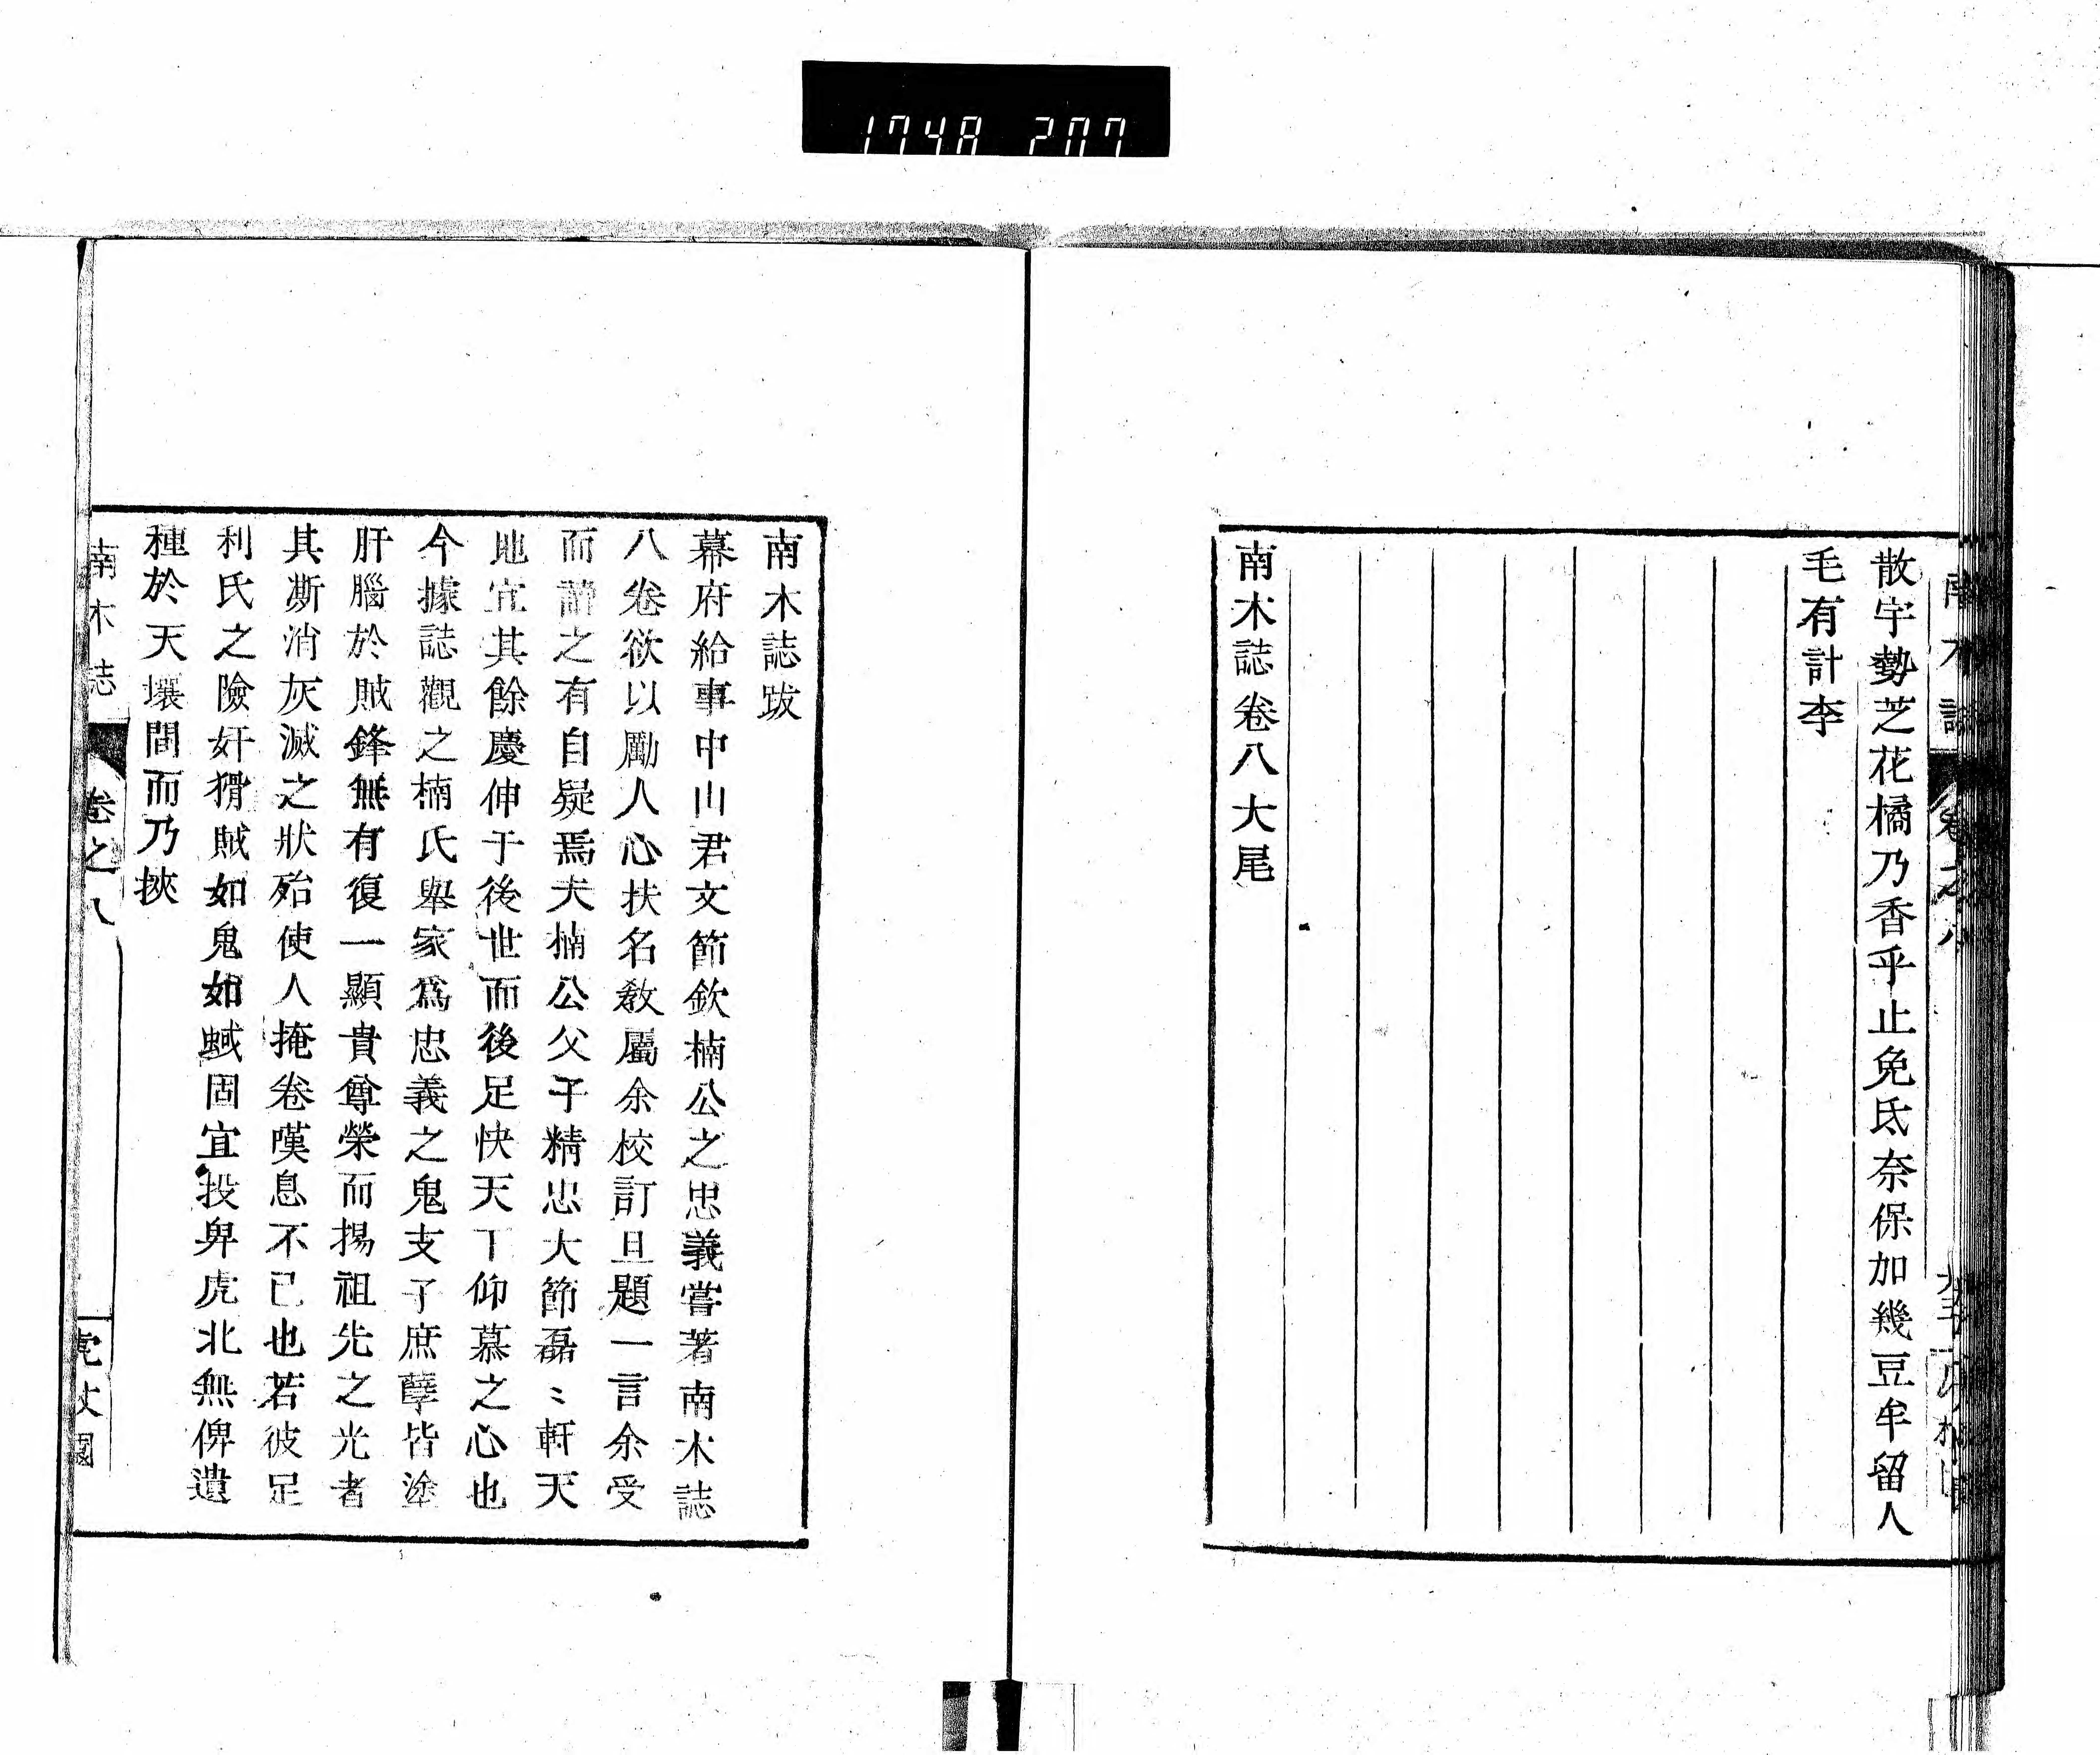 1748 207
散宇勢芝花橘乃香乎止免氐奈保加幾豆牟留人
毛有計李
南木誌卷八大尾
南木誌跋
幕府給事中山君文節欽楠公之忠義嘗著南木誌
八卷欲以勵人心扶名敎屬余校訂且題一言余受
而讀之有自疑焉夫楠公父子精忠大節磊〻軒天
地宜其餘慶伸于後世而後足快天下仰慕之心也
今據誌觀之楠氏舉家爲忠義之鬼支子庶孽皆塗
肝腦於賊鋒無有復一顯貴尊榮而揚祖先之光者
其澌消灰滅之狀殆使人掩卷嘆息不已也若彼足
利氏之險奸猾賊如鬼如蜮固宜投畀虎北無俾遺
種於天壤間而乃挾
南木誌 卷之八